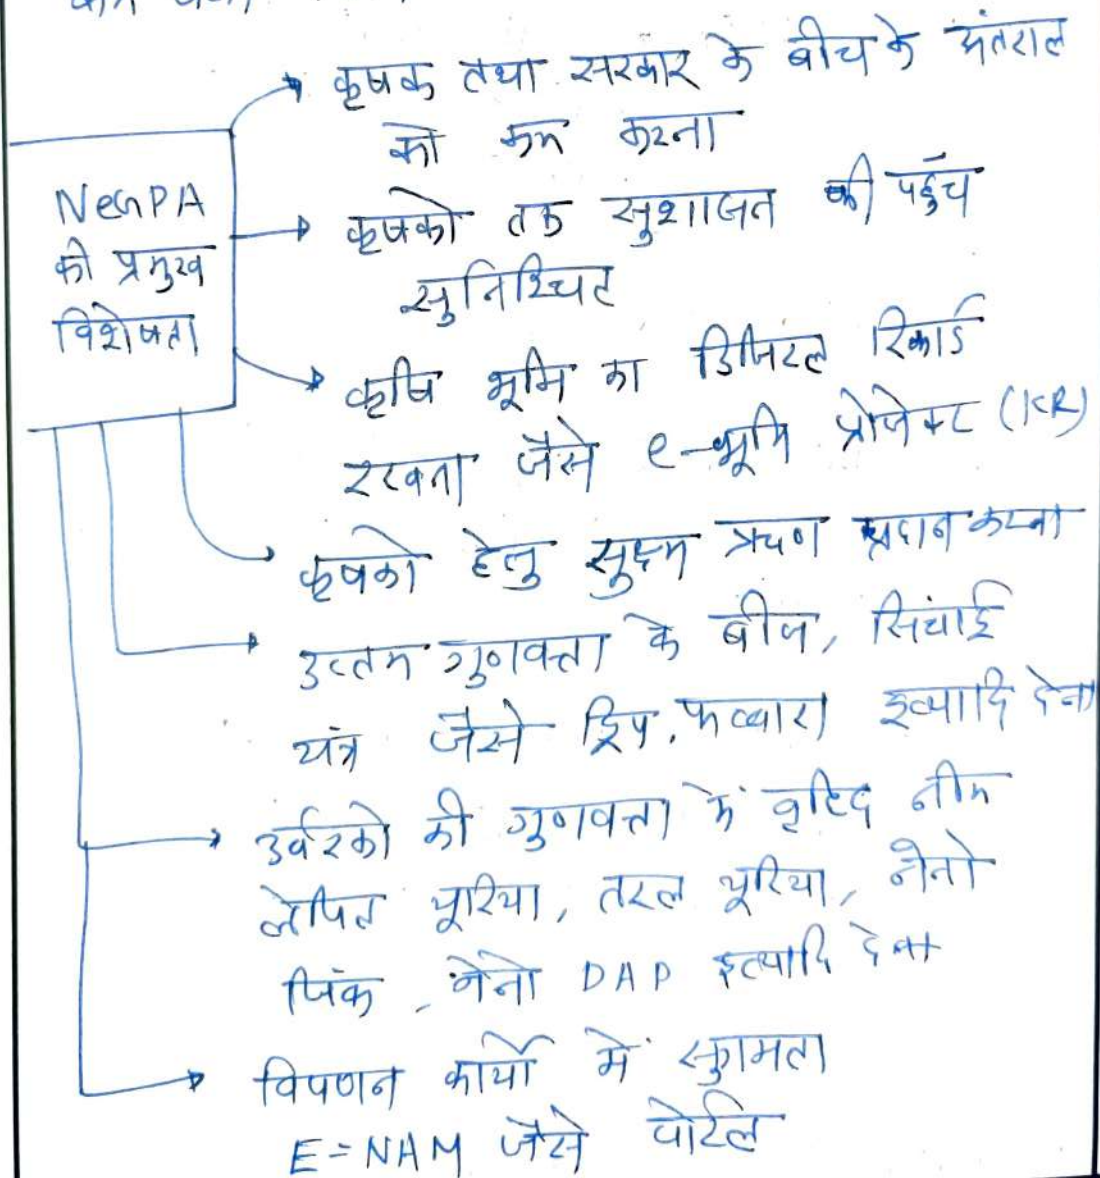 NeGPA
की प्रमुख
विशेषता
कृषक तथा सरकार के बीच के अंतराल
को कम करना
कृषको तक सुशासन की पहुँच
सुनिश्चिट
कृषि भूमि का डिजिटल रिकार्ड
रखना जैसे e-भूमि प्रोजेक्ट (KR)
कृषको हेतु सुक्ष्म ऋण प्रदान करना
उत्तम गुणवत्ता के बीज, सिंचाई
यंत्र जैसे ड्रिप, फव्वारा इत्यादि देना
उर्वरको की गुणवत्ता में वृद्धि नीम
लेपित यूरिया, तरल यूरिया, नेनो
जिंक, नेनो DAP इत्यादि देना
विपणन कार्यो में सुगमता
E=NAM जैसे पोर्टल